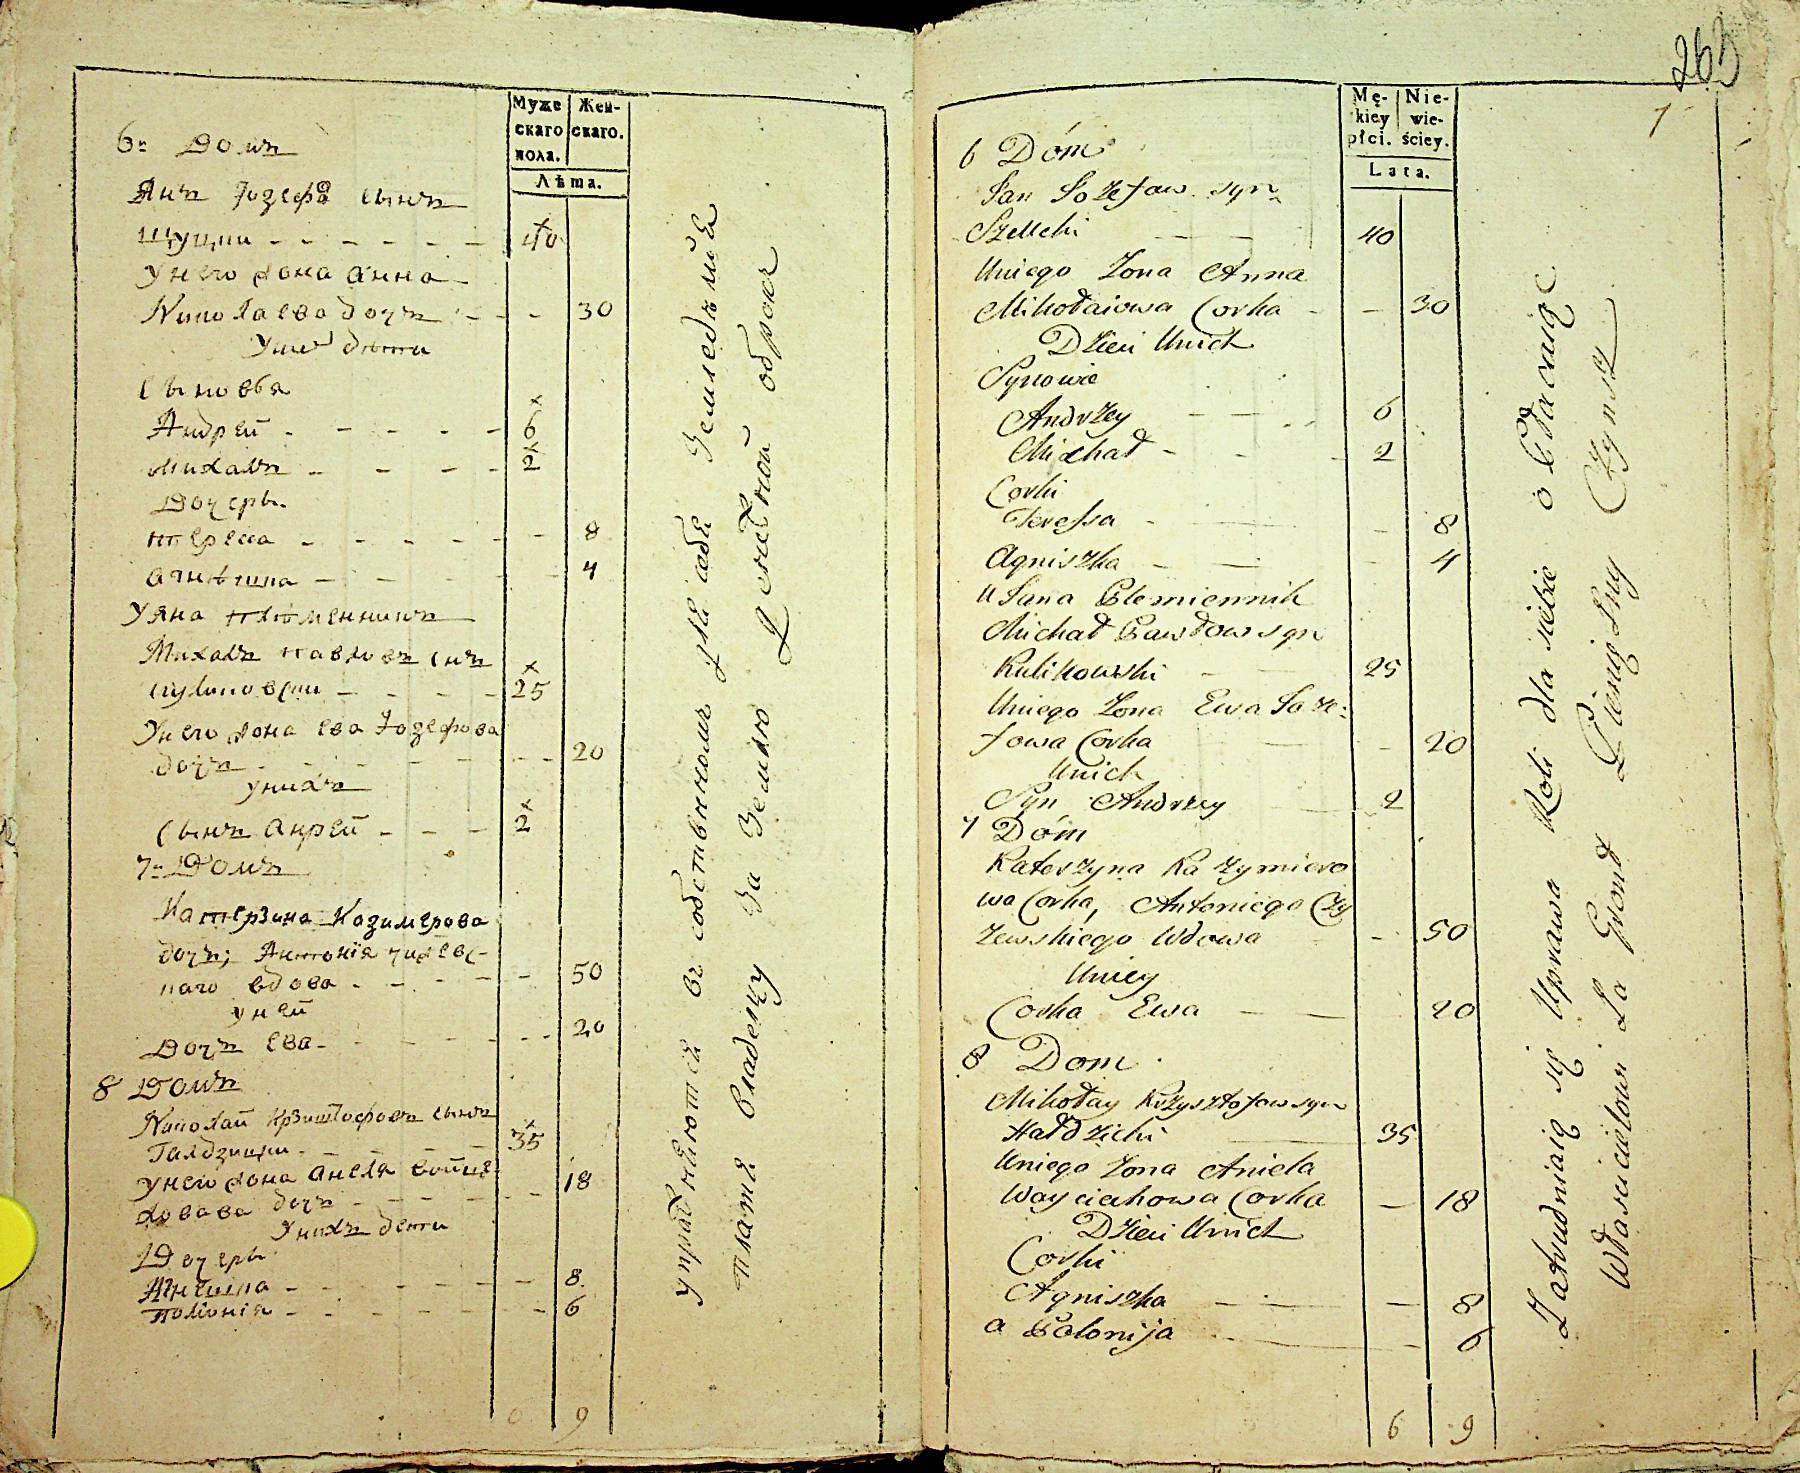 Муже
скаго
пола.
Жен-
скаго.
Лѣта.
6 Домъ
Янъ Іозефа сынъ
40
У него жона Анна
Николаева дочъ 30
У них дѣти
Сыновья
Андрей 6
Михалъ 2
Дочеры
Тереса 8
Агнѣшка 4
У Яна племенникъ
Михалъ Павловъ сынъ
Куликовски 25
У него жона Ева Іозефова
дочъ 20
У нихъ
Сынъ Анрей 2
7 Домъ
Катерзина Казимерова
дочъ, Антонія Чижевс-
каго вдова 50
У ней
Дочъ Ева 20
8 Домъ
Николай Крзиштофовъ сынъ
Галдзицки 35
У него жона Анеля Войце-
ховава дочъ 18
У нихъ дети
Дочеры
Агнешка 8
Полонія 6
9
упражняются въ собственномъ для себя Земледѣліи
платя владельцу за Землю Денежной оброкъ
263
7
Mę-
kiey
płci.
Nie-
wie-
ściey.
Lata.
6 Dóm
Jan Jozefow syn
40
Uniego Zona Anna
Mikołaiowa Corka 30
Dzieci Unich
Synowie
Andrzey 6
Michał 2
Corki
Teressa 8
Agniszka 4
U Jana Plemiennik
Michał Pawłow syn
Kulikowski 25
Uniego Zona Ewa Joze-
fowa Corka 20
Unich
Syn Andrzey 2
7 Dóm
Katerzyna Kazymiero
wa Corka, Antoniego Czy
zewskiego Wdowa 50
Uniey
Corka Ewa 20
8 Dom
Mikołay Krzysztofow syn
Hałdzicki 35
Uniego Zona Aniela
Woyciechowa Corka 18
Dzieci Unich
Corki
Agniszka 8
a Polonija 6
6 9
Zatrudniaią się Uprawa Roli dla siebie opłacaiąc
Włascicielowi Za Gront Pieniężny Czynsz